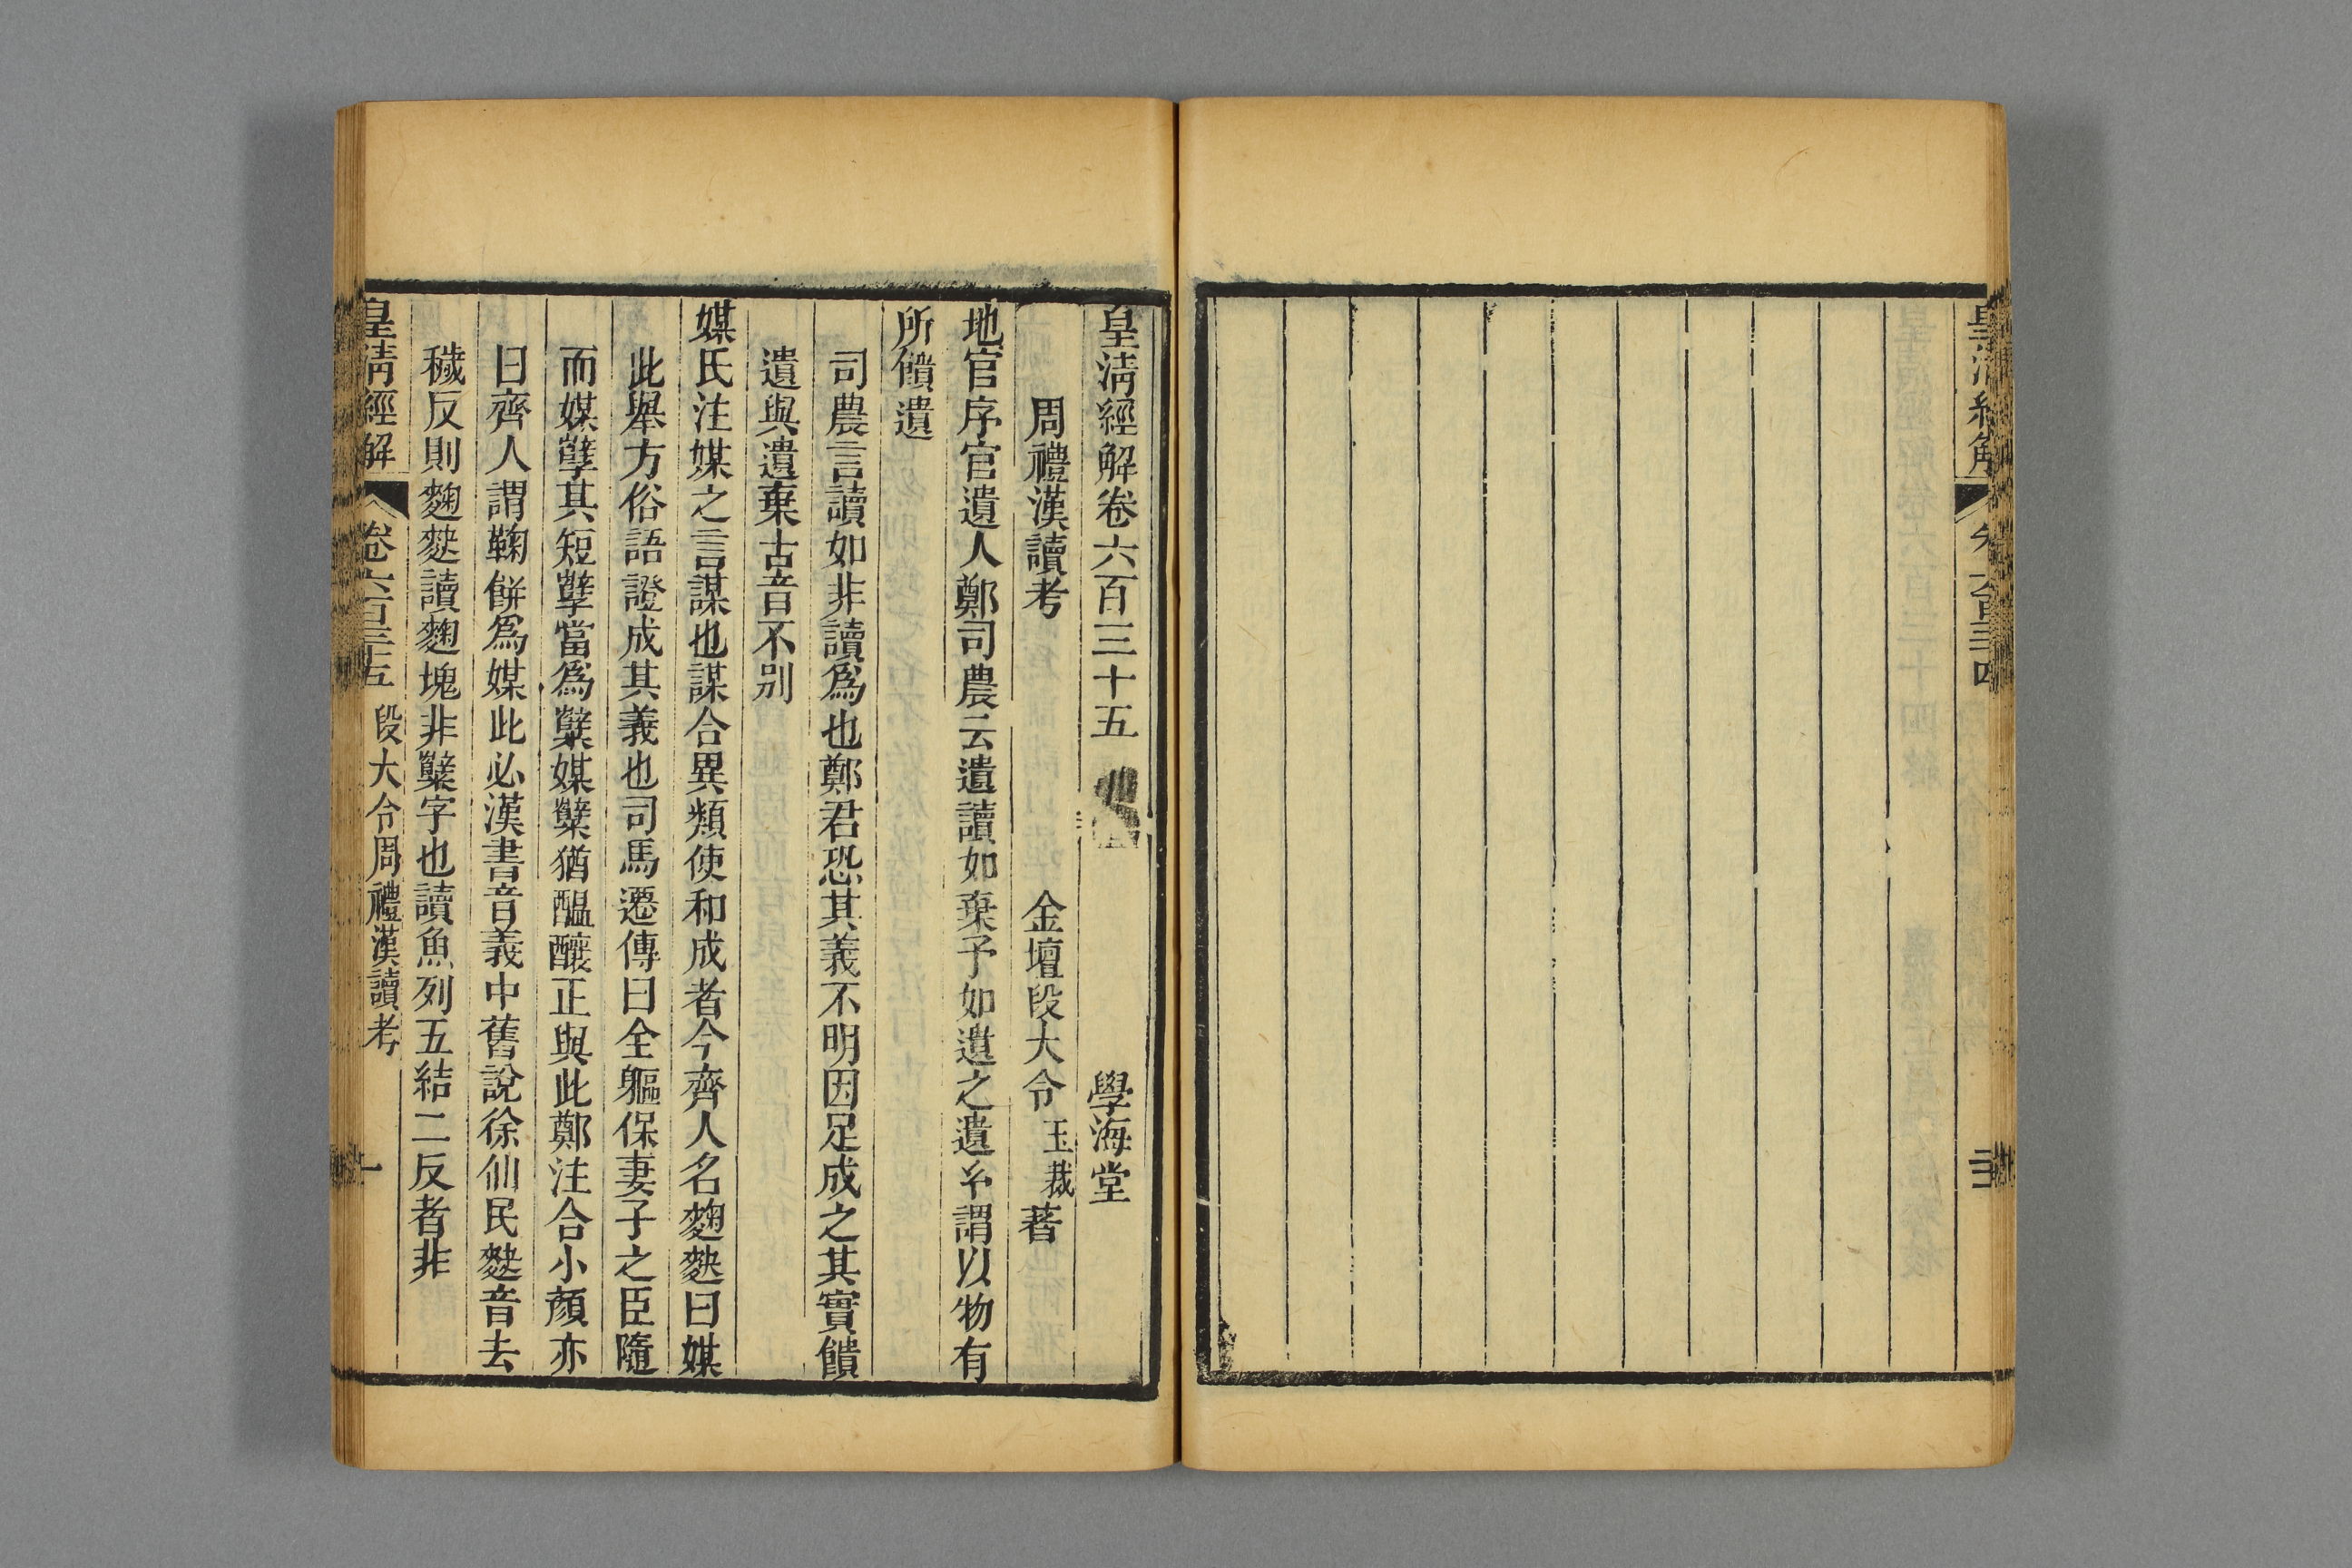 皇清經解
皇清經解卷六百三十五 學海堂
周禮漢讀考 金壇段大令玉裁著
地官序官遺人鄭司農云遺讀如棄予如遺之遺糸謂以物有
所饋遺
司農言讀如非讀爲也鄭君恐其義不明因足成之其實饋
遺與遺棄古音不别
媒氏注媒之言謀也謀合異類使和成者今齊人名麴麩曰媒
此舉方俗語證成其義也司馬遷傳曰全軀保妻子之臣隨
而媒孽其短孽當爲糱媒糱猶醞釀正與此鄭注合小顏亦
曰齊人謂鞠餅爲媒此必漢書音義中舊說徐仙民麩音去
穢反則麴麩讀麴塊非糱字也讀魚列五結二反者非
皇清經解 卷六百三十五 段大令周禮漢讀考 一